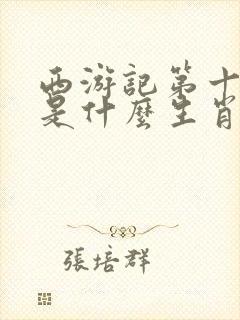 西游記第十
是什麽生肖
張培群